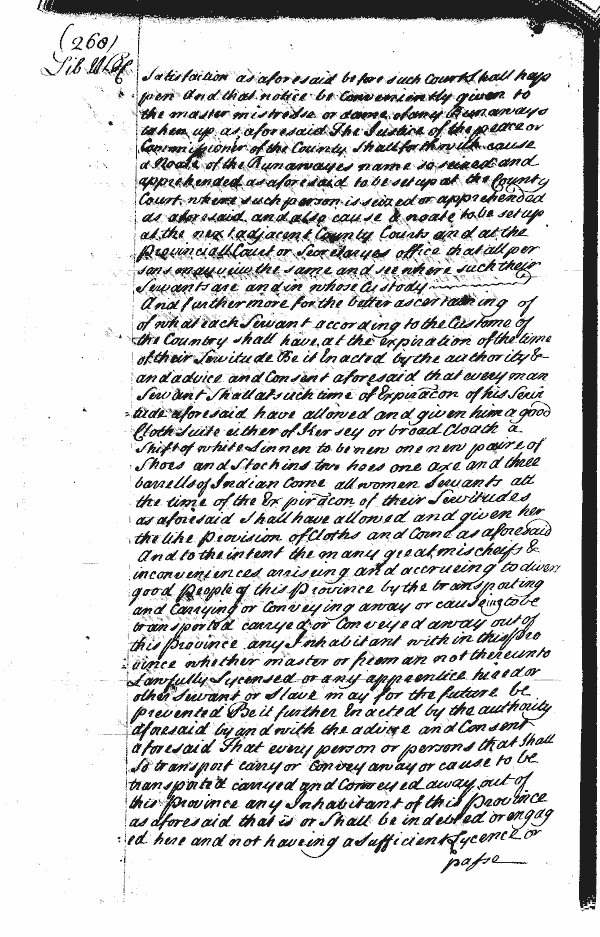 (260)
Lib W.H.
Satisfaction as aforesaid before such Court shall hap
pen And that notice be Conveniently given to
the master mistresse or dame of any Runaways
taken up as aforesaid The Justice of the peace or
Commissioner of the County shall forthwith cause
a Noate of the Runawayes name so seized and
apprehended as aforesaid to be set up at the County
Court where such person is seized or apprehended
as aforesaid and also cause a noate to be set up
at the next adjacent County Courts and at the
Provinciall Court or Secretaryes office that all per
sons may view the same and see where such their
Servants are and in whose Custody
And furthermore for the better ascertaining of
of what each Servant according to the Custome of
the Country shall have at the expiration of the time
of their Servitude Be it Enacted by the authority &
and advice and Consent aforesaid that every man
Servant Shall at such time of Expiracon of his Servi
tude aforesaid have allowed and given him a good
Cloth suite either of Kersey or broad Cloath a
Shift of white Linnen to be new one new paire of
Shoes and Stockins two hoes one axe and three
barrells of Indian Corne all women Servants att
the time of the Expiracon of their Servitudes
as aforesaid Shall have allowed and given her
the like Provision of Cloths and Corne as aforesaid
And to the intent the many great mischeifs &
inconveniences arriseing and accrueing to divers
good People of this Province by the transporting
and Carrying or Conveying away or causeing to be
transported carryed or Conveyed away out of
this Province any Inhabitant within this Pro
vince whether master or freeman not thereunto
Lawfully Lycensed or any apprentice hired or
other Servant or Slave may for the future be
prevented Be it further Enacted by the authority
aforesaid by and with the advice and Consent
aforesaid That every person or persons that Shall
So transport carry or Convey away or cause to be
transported carryed and Conveyed away out of
this Province any Inhabitant of this Province
as aforesaid that is or Shall be indebted or engag
ed here and not haveing a Sufficient Lycence or
passe